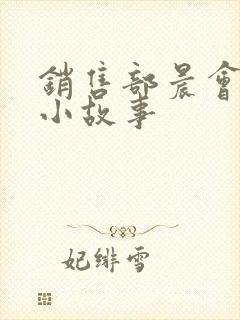 銷售部晨會
小故事
妃緋雪